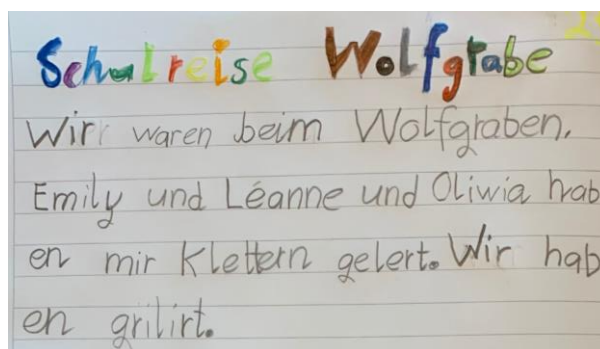 Schulreise Wolfgrabe
Wir waren beim Wolfgraben.
Emily und Léanne und Oliwia hab
en mir Klettern gelert. Wir hab
en grilirt.